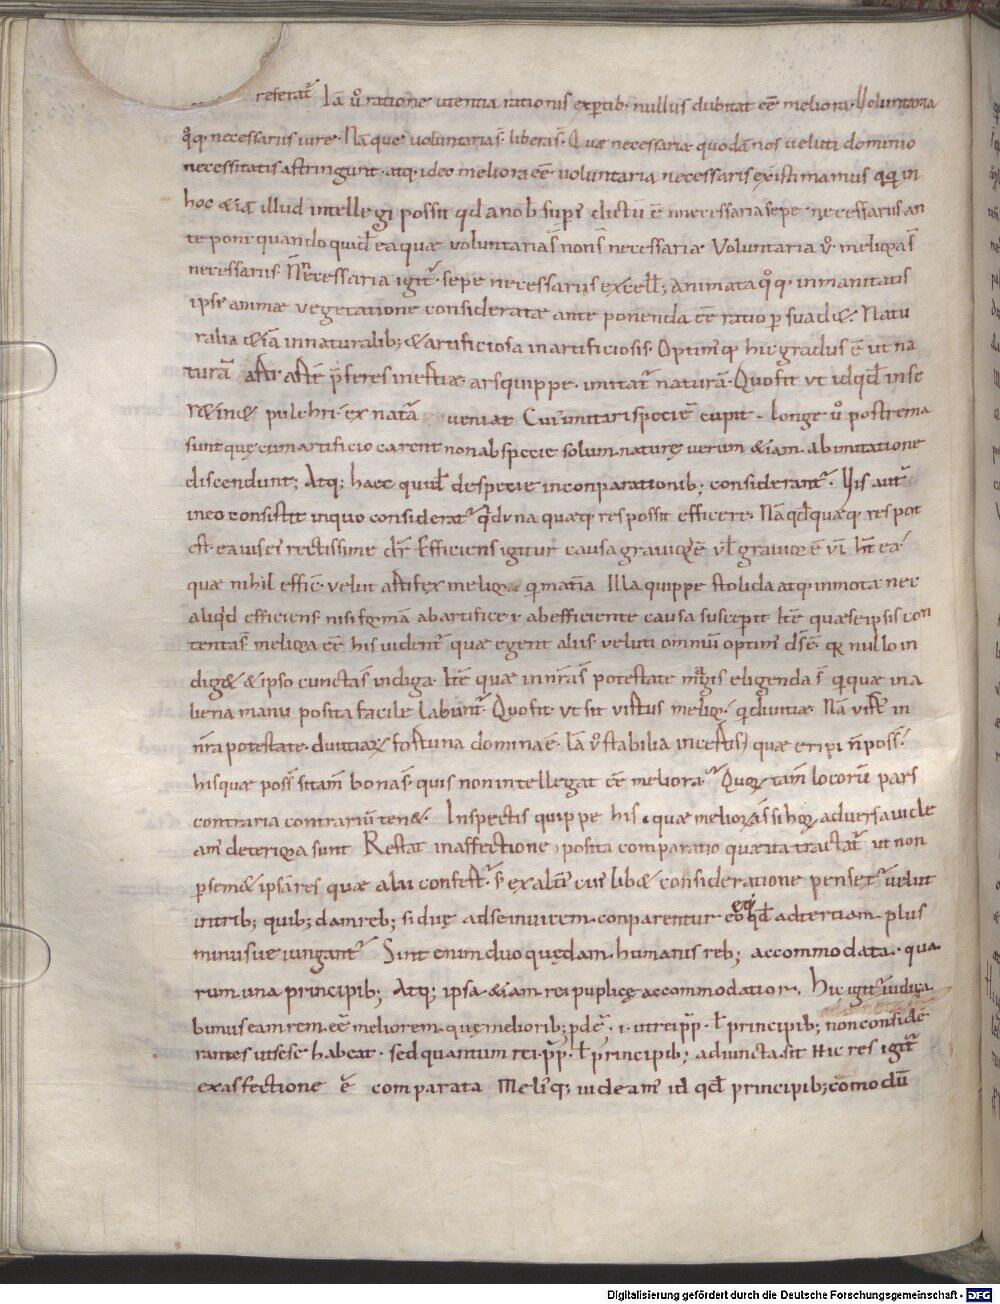 referat͛ Iā u͛o ratione utentia rationis exptib; nullus dubitat eē meliora. Uoluntaria
q͛oq; necessariis iure. Nā que voluntaria s̄ libera s̄. Quae necessaria quodā nos veluti dominio
necessitatis astringunt. atq; ideo meliora eē voluntaria necessariis existimamus qq; in
hoc & iā illud intellegi possit qd a nob̄ supi͛ dictū ē necessaria sepe necessariis an
te poni quando quid̄ ea quae voluntaria s̄ non s̄ necessaria Voluntaria v͛o meliora s̄
necessariis. Necessaria igit͛ sepe necessariis excell̄; Animata q͛oq; inanimatis
ipsi animae vegetatione consideratae ante ponenda eē ratio psuad&. Natu
ralia &iā innaturalib; & artificiosa inartificiosis. Optim͛q; hic gradus ē ut na
turā p̄feres ars quippe imitat͛ naturā. Quo fit ut id qd̄ in se
pulchri ex nat͛a veniat cupit. longe u͛o postrema
sunt que cum artificio carent non ab specie solum nature verum &iam ab imitatione
discendunt; Atq; haec quid̄ de specie in conparationib; considerant͛. His aut̄
in eo consistit in quo considerat͛ quid una quaeq; res possit efficere. Nā qd̄ quaeq; res pot
est ea vis ei rectissime dr̄ Efficiens igitur causa
quae nihil effic̄ velut artifex melior quā mat͛ia Illa quippe stolida atq; inmota nec
aliqid efficiens nisi formā ab artifice & ab efficiente causa susceperit Itē quae se ipsis con
tenta s̄ meliora eē his vident͛ quae egent aliis veluti omniū optim͛ d͞s ē. qr nullo in
dig& & ipso cuncta s̄ indiga. Itē quae in nr̄a s̄ potestate magis eligenda s̄ quā quae in a
liena manu posita facile labunt͛. Quo fit vt sit virtus melior quā divitiae. Nā virt͛ in
nr̄a potestate. divitiarū fortuna domina ē. Iā v͛o stabilia incertis quae eripi n̄ poss͛.
hisquae poss͛ si tam͛ bona s̄ quis non intellegat eē meliora. Quoq; tam͛ locorū pars
contraria contrariū ten&. Inspectis quippe his quae meliora s̄ si horū adversa vide
am͛ deteriora sunt Restat in affectione posita comparatio quae ita tractat͛ ut non
p sem& ipsā res quae alii confert͛ s; ex alt͛i͛ cui͛ lib& consideratione penset͛ velut
in trib; quib; dam reb; si due ad se invicem conparentur eo qd̄ ad tertiam plus
minusve iungant͛ Sint enim duo quedam humanis reb; accommodata. qua
rum una principib; Atq; ipsa &iam rei puplice accommodatior. Hic igit͛ iudica
bimus eam rem eē meliorem. que meliorib; pdē͛. i. ut rei pp̄. ł principib; non conside
rantes ut sese habeat. sed quantum rei pp̄. ł principib; adiuncta sit Hic res igit͛
ex asfectione ē comparata Meli͛q; videam͛ id qd̄ principib; comodū
Digitalisierung gefördert durch die Deutsche Forschungsgemeinschaft - DFG